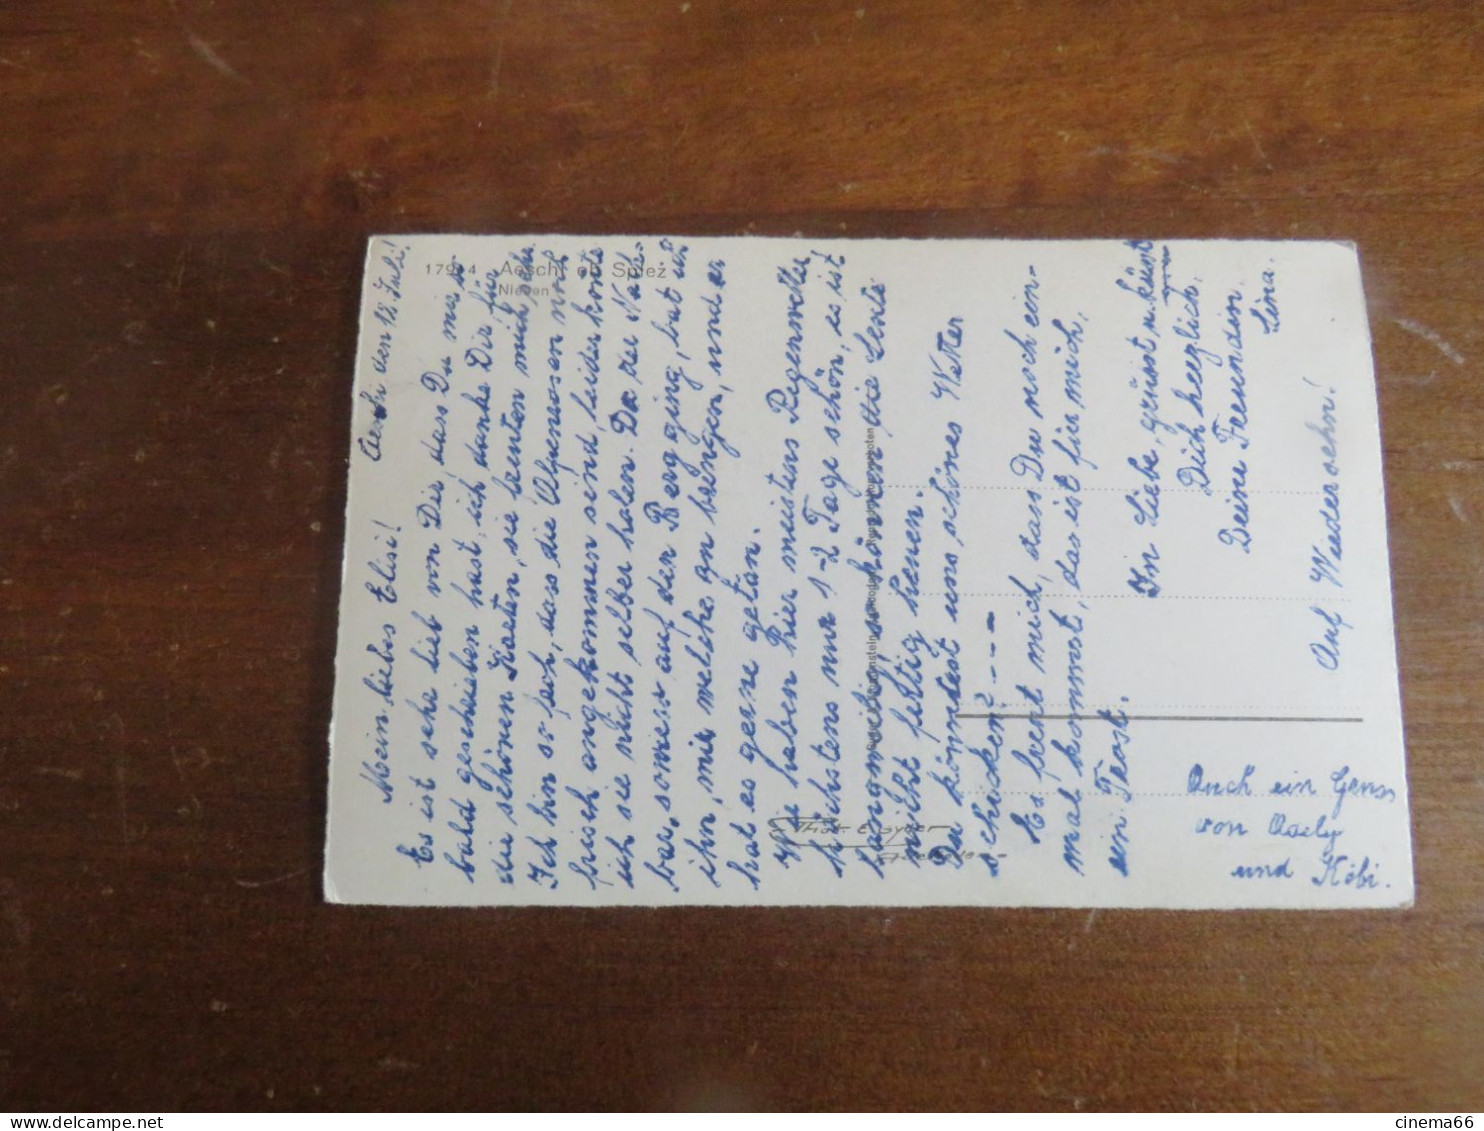 Aeschi den 18. Juli!
Mein liebes Elisi!
Es ist sehr lieb von Dir, das Du mir so
bald geschrieben hast, ich danke Dir für
die schönen Karten, sie freuten mich sehr.
Ich bin so froh, dass die Alpenrosen noch
frisch angekommen sind, leider konte
ich sie nicht selber holen. Da der Nach-
bar, sowieso auf den Berg ging, bat ich
ihn, mir welche zu bringen, und er
hat es gerne getan.
Wir haben hier meistens Regenwetter
höchstens nur 1-2 Tage schön, es ist
langweilig, so können die Leute
nicht fertig heuen.
Du könntest uns schönes Wetter
schicken? - - -
Es freut mich, dass Du noch ein-
mal kommst, das ist für mich,
ein Trost.
In Liebe, grüsst u. küsst
Dich herzlich.
Deine Freundin.
Lina.
Auf Wiedersehn!
Auch ein Gruss
von
und Köbi.
17914 Aeschi ob Spiez
Niesen